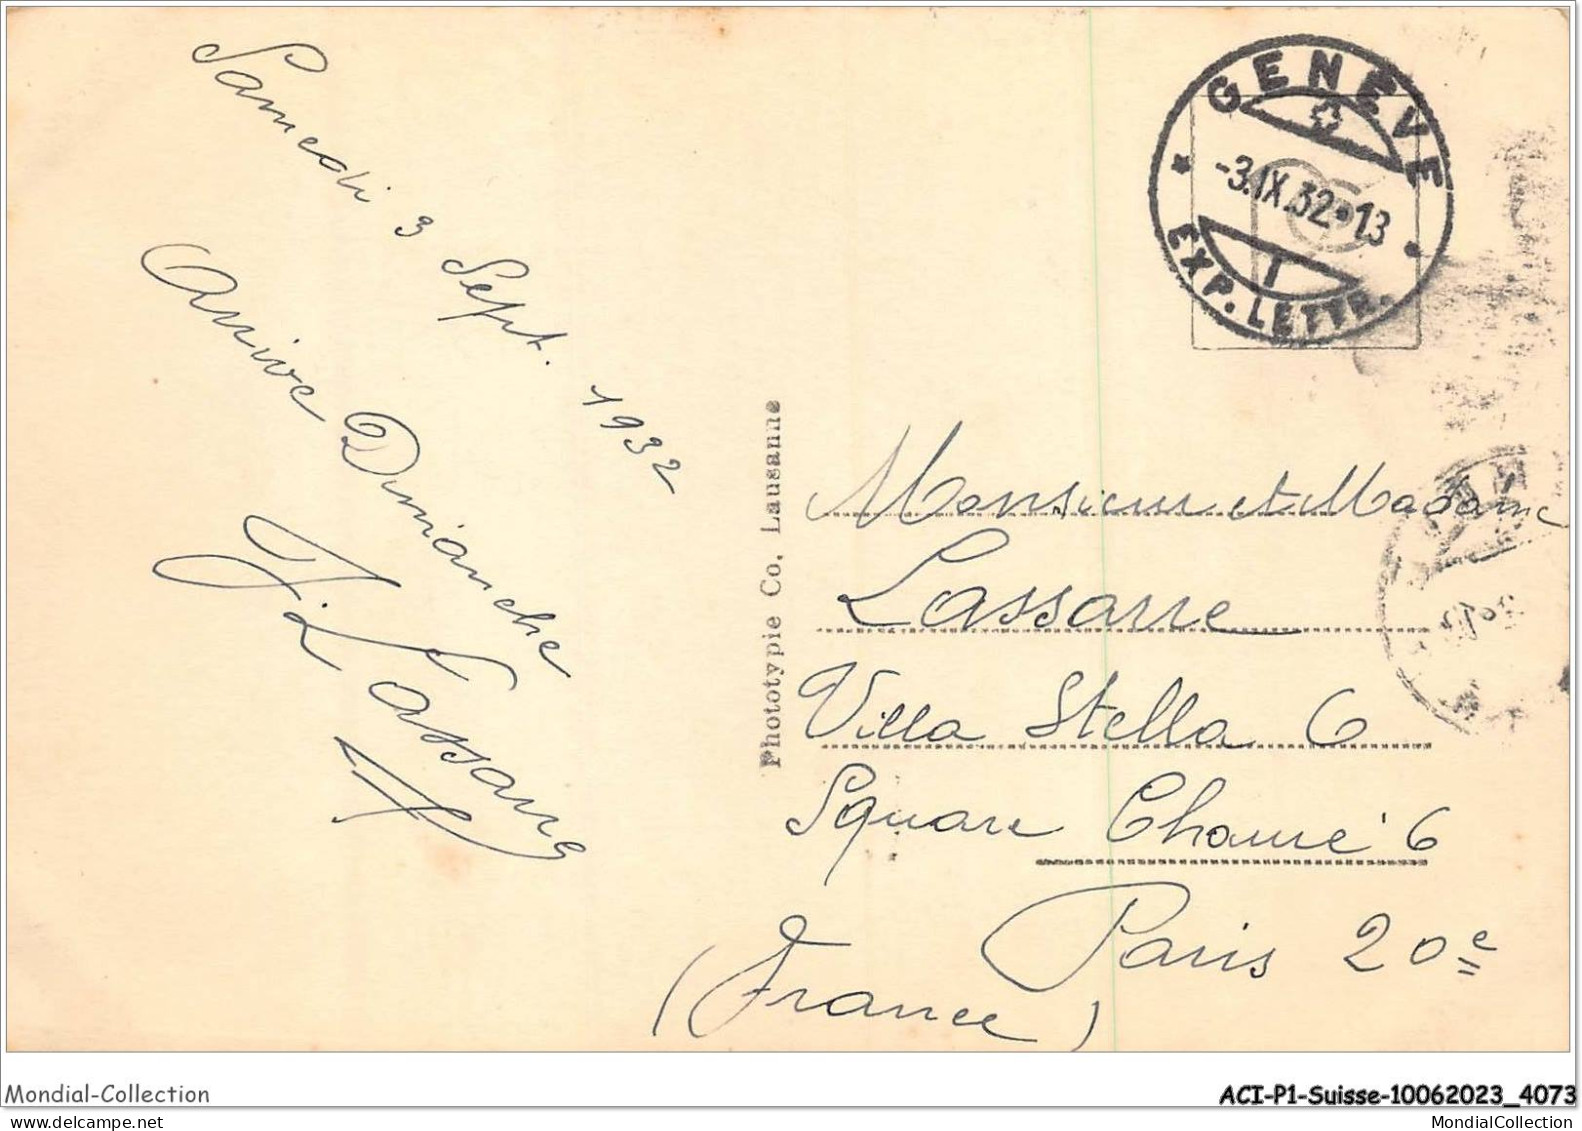 Samedi 3 Sept. 1932
Arrive Dimanche
Lassarre
Phototypie Co. Lausanne
GENÈVE
-3.IX.32-13
1
EXP. LETTR.
Monsieur et Madame
Lassarre
Villa Stella 6
Square
6
Paris 20e
(France)
Mondial-Collection
ACI-P1-Suisse-10062023_4073
MondialCollection
MondialCollection